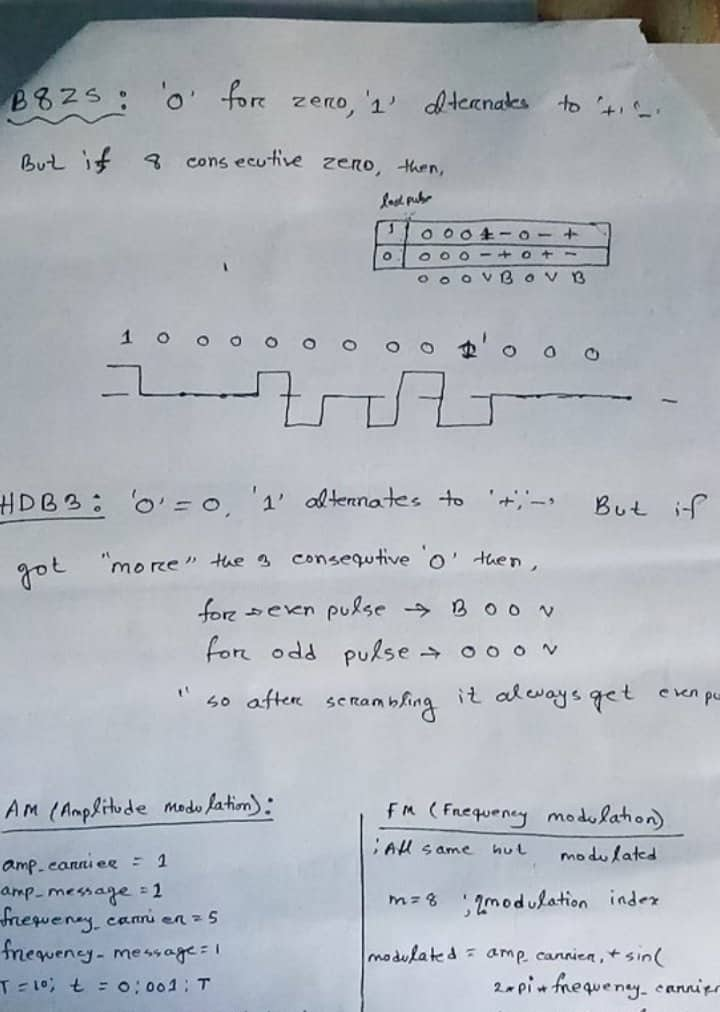 B8ZS: '0' for zero, '1' alternates to '+', '-'.
But if 8 consecutive zero, then,
last pulse
1 0 0 0 + - 0 - +
0 0 0 0 - + 0 + -
0 0 0 V B 0 V B
1 0 0 0 0 0 0 0 0 1 0 0 0
HDB3: '0' = 0, '1' alternates to '+', '-' But if
got "more" the 3 consequtive '0' then,
for even pulse → B 0 0 V
for odd pulse → 0 0 0 V
" so after scrambling it always get even pu
AM (Amplitude modulation):
amp_carrier = 1
amp_message = 1
frequency_carrier = 5
frequency_message = 1
T = 10; t = 0:001:T
FM (Frequency modulation)
; All same but modulated
m = 8 ; modulation index
modulated = amp_carrier.* sin(
2*pi*frequency_carrier